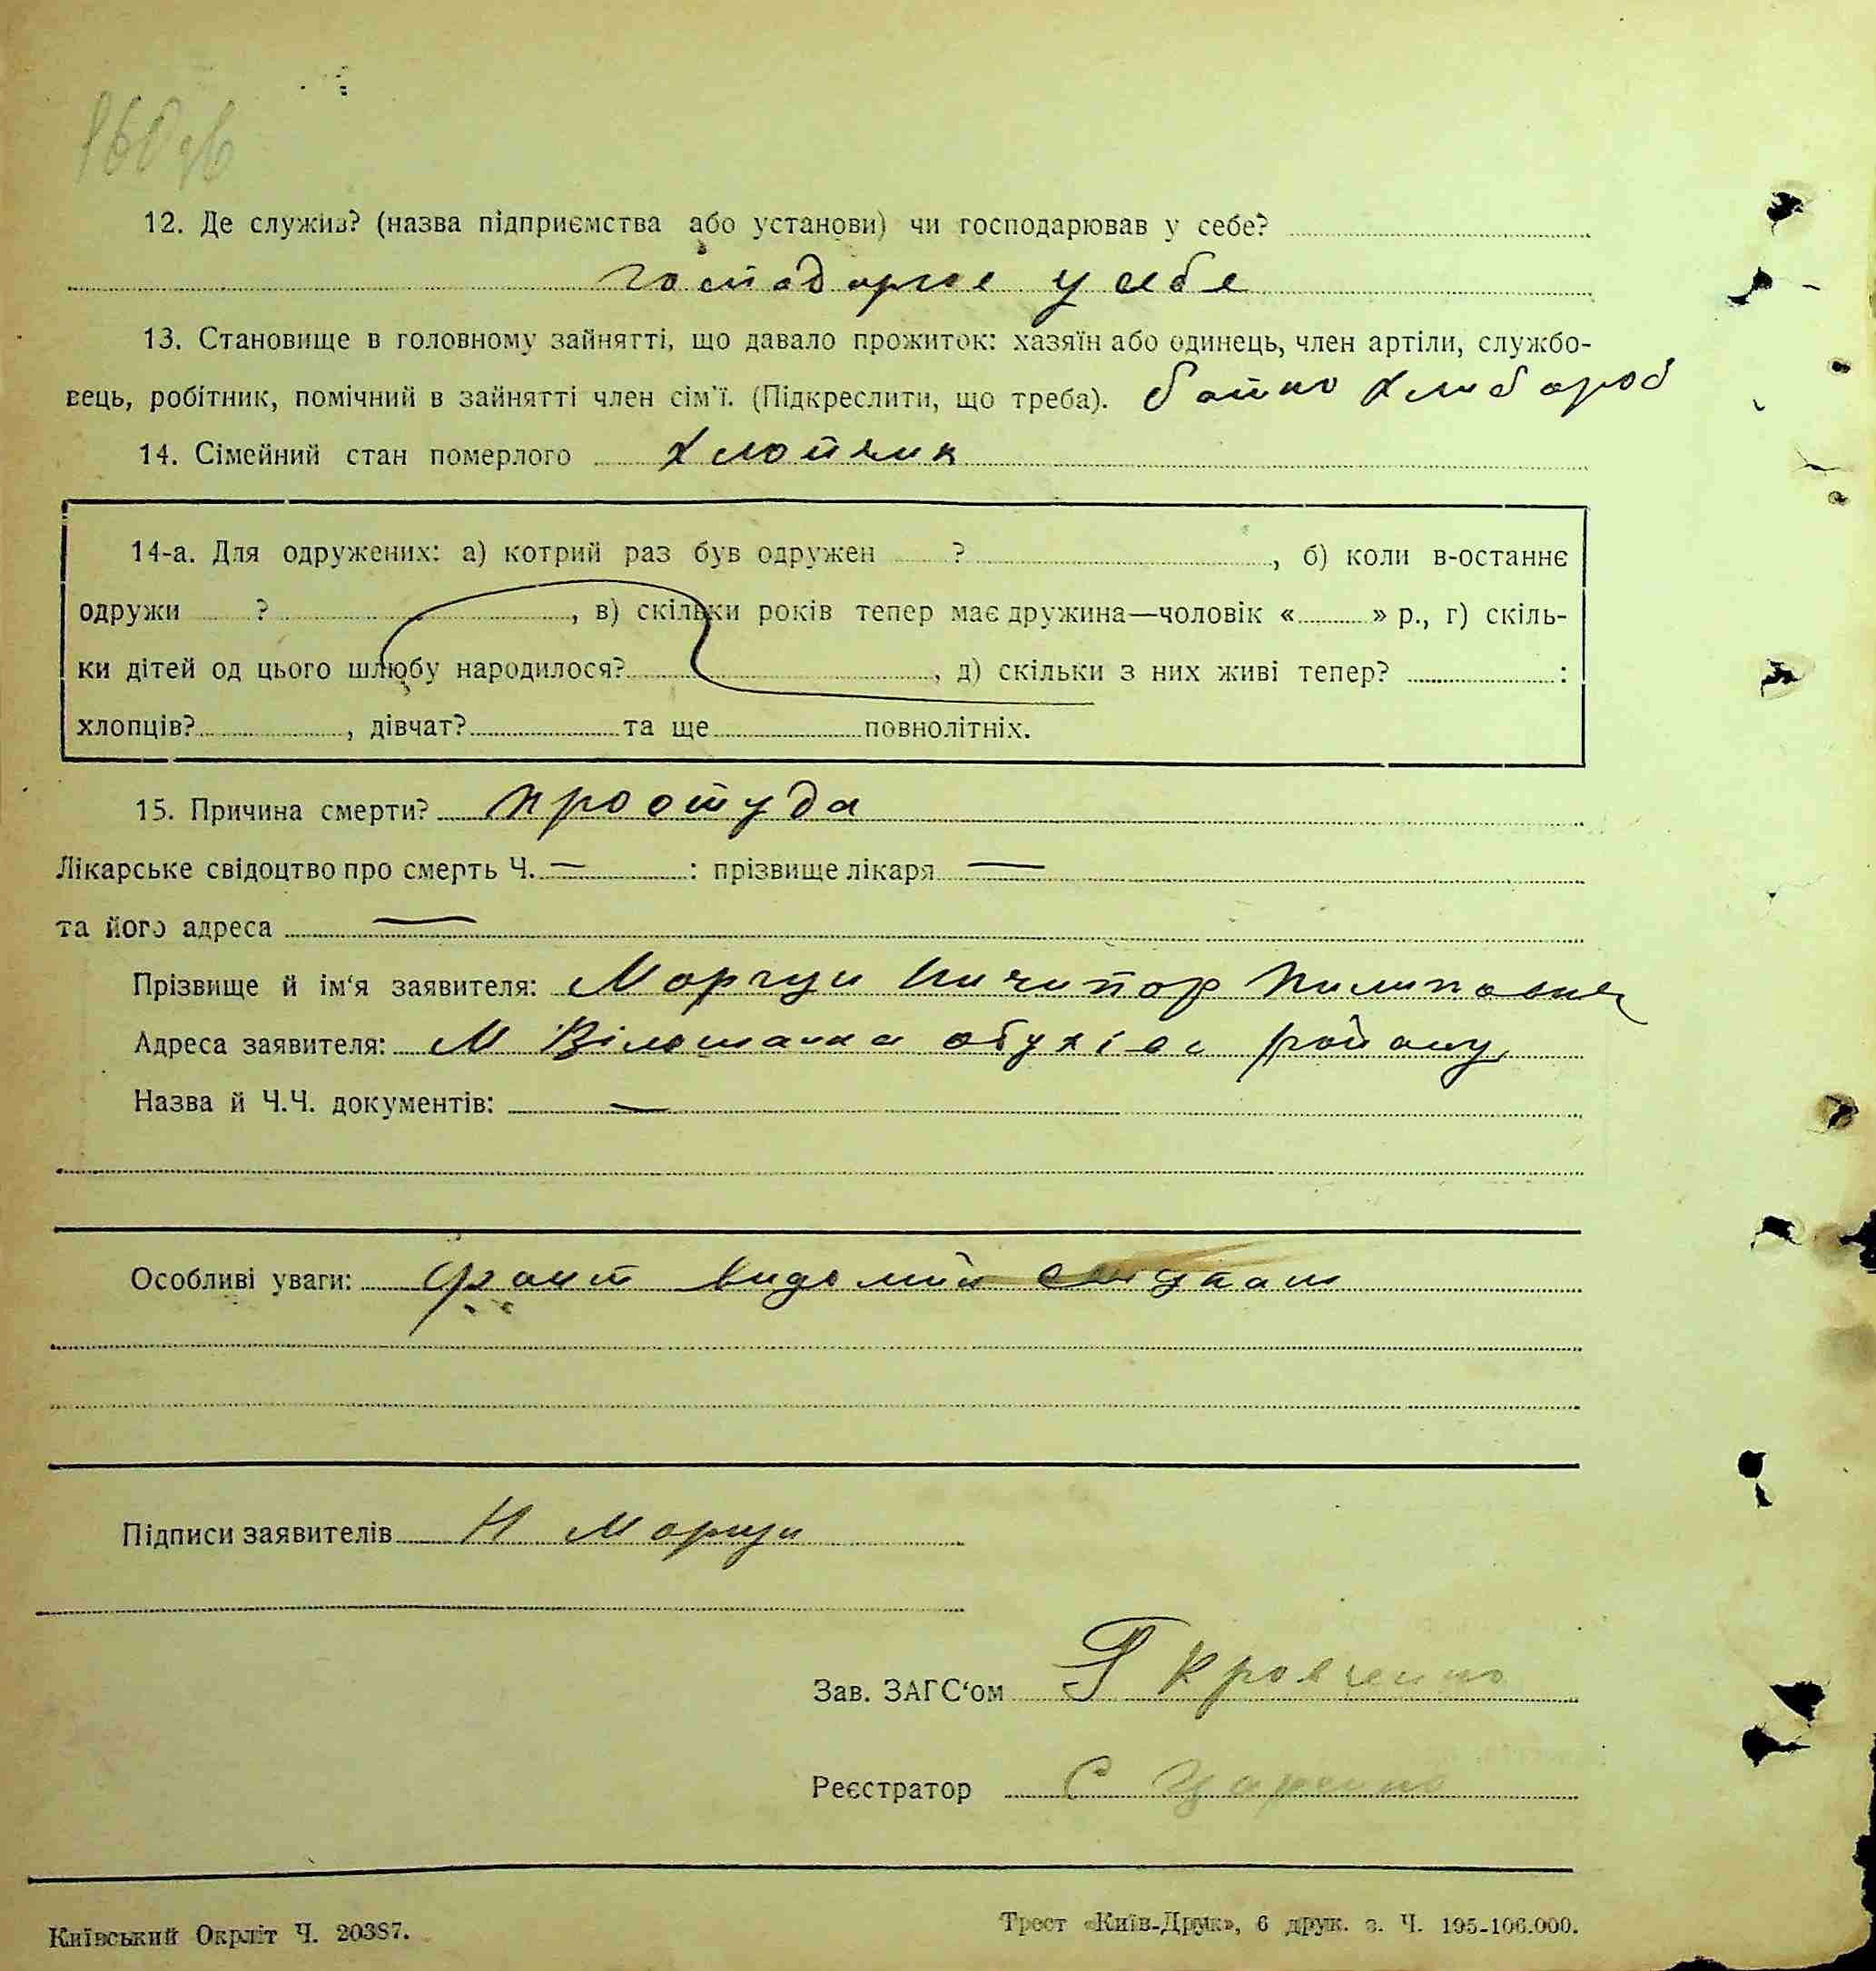 160 зв
12. Де служив? (назва підприємства або установи) чи господарював у себе?
господарює у себе
13. Становище в головному зайнятті, що давало прожиток: хазяїн або одинець, член артіли, службо-
вець, робітник, помічний в зайнятті член сім'ї. (Підкреслити, що треба). батько хлибороб
14. Сімейний стан померлого хлопчик
14-а. Для одружених: а) котрий раз був одружен ? , б) коли в-останнє
одружи ? , в) скільки років тепер має дружина—чоловік « » р., г) скіль-
ки дітей од цього шлюбу народилося? , д) скільки з них живі тепер? :
хлопців? , дівчат? та ще повнолітніх.
15. Причина смерти? простуда
Лікарське свідоцтво про смерть Ч. — : прізвище лікаря —
та його адреса —
Прізвище й ім'я заявителя: Моргун Ничипор Пилипович
Адреса заявителя: М Вілшанка обухівс району
Назва й Ч.Ч. документів: —
Особливі уваги: Факт видомий свідкам
Підписи заявителів Н Моргун
Зав. ЗАГС'ом Г Кравченко
Реєстратор С Царенко
Київський Окрліт Ч. 20387.
Трест «Київ-Друк», 6 друк. з. Ч. 195-106.000.